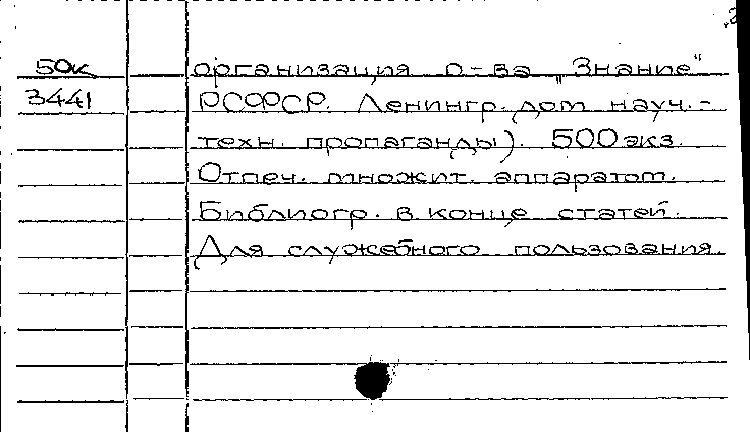 50к организация о-ва „Знание"
3441 РСФСР. Ленингр. дом науч.-
техн. пропаганды). 500 экз.
Отпеч. множит. аппаратом.
Библиогр. в конце статей.
Для служебного пользования.